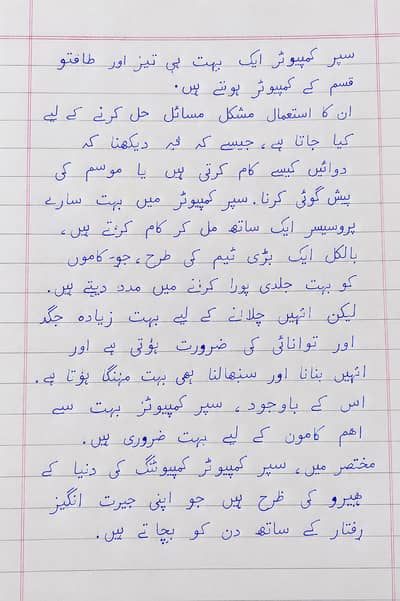 سپر کمپیوٹر ایک بہت ہی تیز اور طاقتو
قسم کے کمپیوٹر ہوتے ہیں.
ان کا استعمال مشکل مسائل حل کرنے کے لیے
کیا جاتا ہے، جیسے کہ یہ دیکھنا کہ
دوائیں کیسے کام کرتی ہیں یا موسم کی
پیش گوئی کرنا. سپر کمپیوٹر میں بہت سارے
پروسیسر ایک ساتھ مل کر کام کرتے ہیں،
بالکل ایک بڑی ٹیم کی طرح، جو کاموں
کو بہت جلدی پورا کرنے میں مدد دیتے ہیں.
لیکن انہیں چلانے کے لیے بہت زیادہ جگہ
اور توانائی کی ضرورت ہوتی ہے اور
انہیں بنانا اور سنبھالنا بھی بہت مہنگا ہوتا ہے.
اس کے باوجود، سپر کمپیوٹر بہت سے
اہم کاموں کے لیے بہت ضروری ہیں.
مختصر میں، سپر کمپیوٹر کمپیوٹنگ کی دنیا کے
ہیرو کی طرح ہیں جو اپنی حیرت انگیز
رفتار کے ساتھ دن کو بچاتے ہیں.